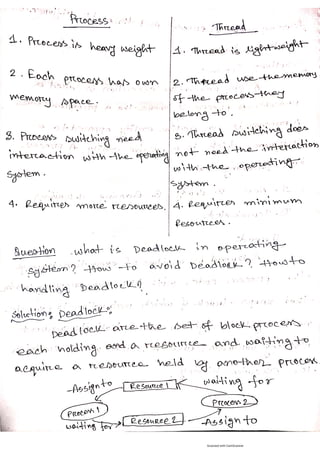 Process
1. Process is heavy weight
2. Each process has own
memory space.
3. Process switching need
interaction with the operating
System.
4. Requires more resources.
Thread
1. Thread is light weight
2. Thread use the memory
of the process they
belong to.
3. Thread switching does
not need the interaction
with the operating
System.
4. Requires minimum
Resources.
Question what is Deadlock in operating
system? How to avoid Deadlock? How to
handling Deadlock?
Solution: Deadlock:
Deadlock are the set of block process
each holding and a resource and waiting to
acquire a resource held by another process
Assign to Resource 1 waiting for
Process 1 Process 2
waiting for Resource 2 Assign to
Scanned with CamScanner